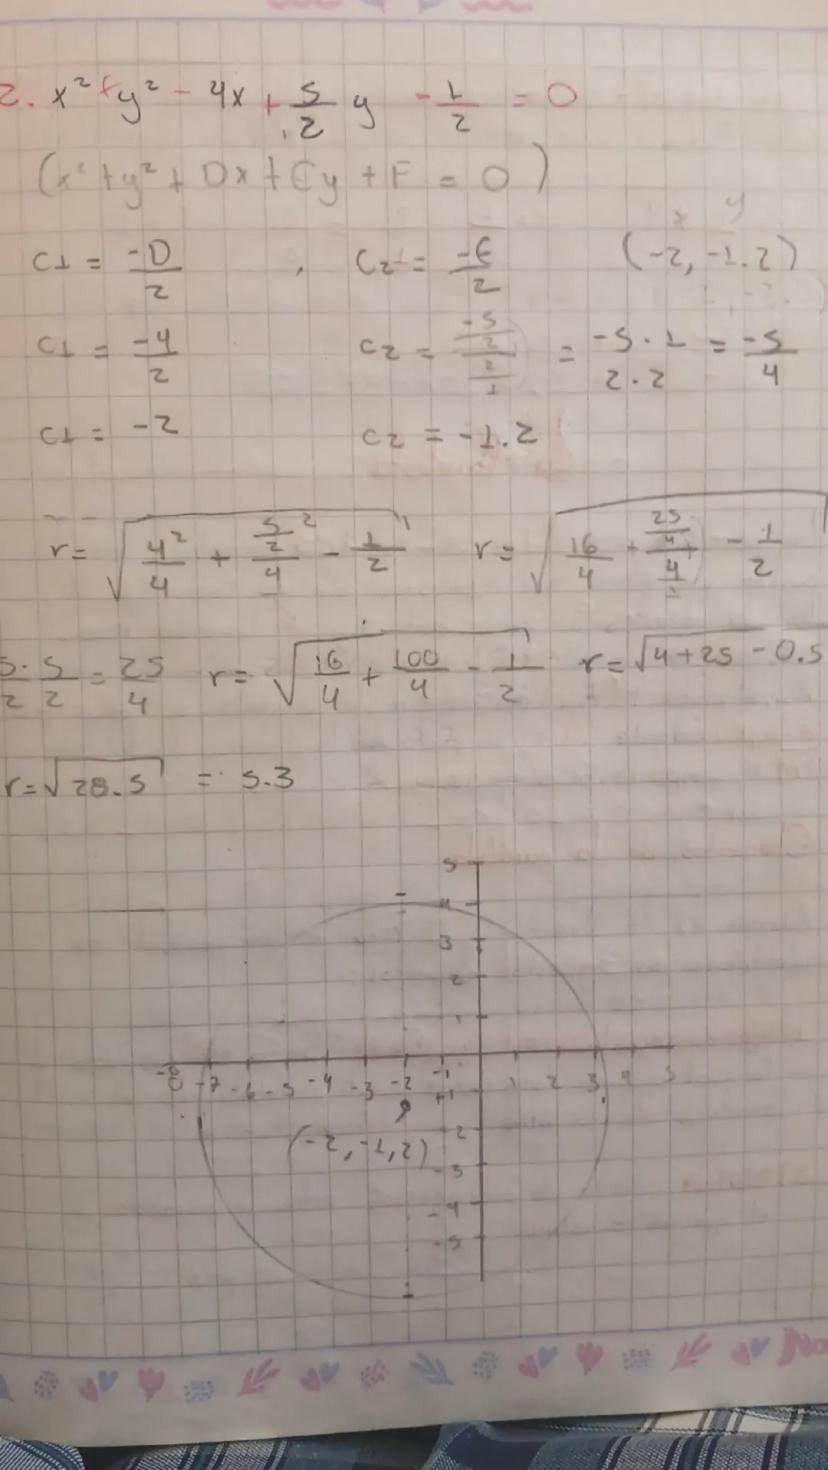 2. x² + y² - 4x + 5/2 y - 1/2 = 0
(x² + y² + Dx + Ey + F = 0)
x y
C1 = -D/2 , C2 = -E/2 (-2, -1.2)
C1 = -4/2 C2 = (-5/2)/(2/1) = -5·1/2·2 = -5/4
C1 = -2 C2 = -1.2
r = √(4²/4 + (5/2)²/4 - 1/2) r = √(16/4 + (25/4)/4 - 1/2)
5·5/2 2 = 25/4 r = √(16/4 + 100/4 - 1/2) r = √(4+25-0.5
r = √28.5 = 5.3
5
4
3
2
1
-8 -7 -6 -5 -4 -3 -2 -1 1 2 3 4 5
(-2, -1,2)
-2
-3
-4
-5